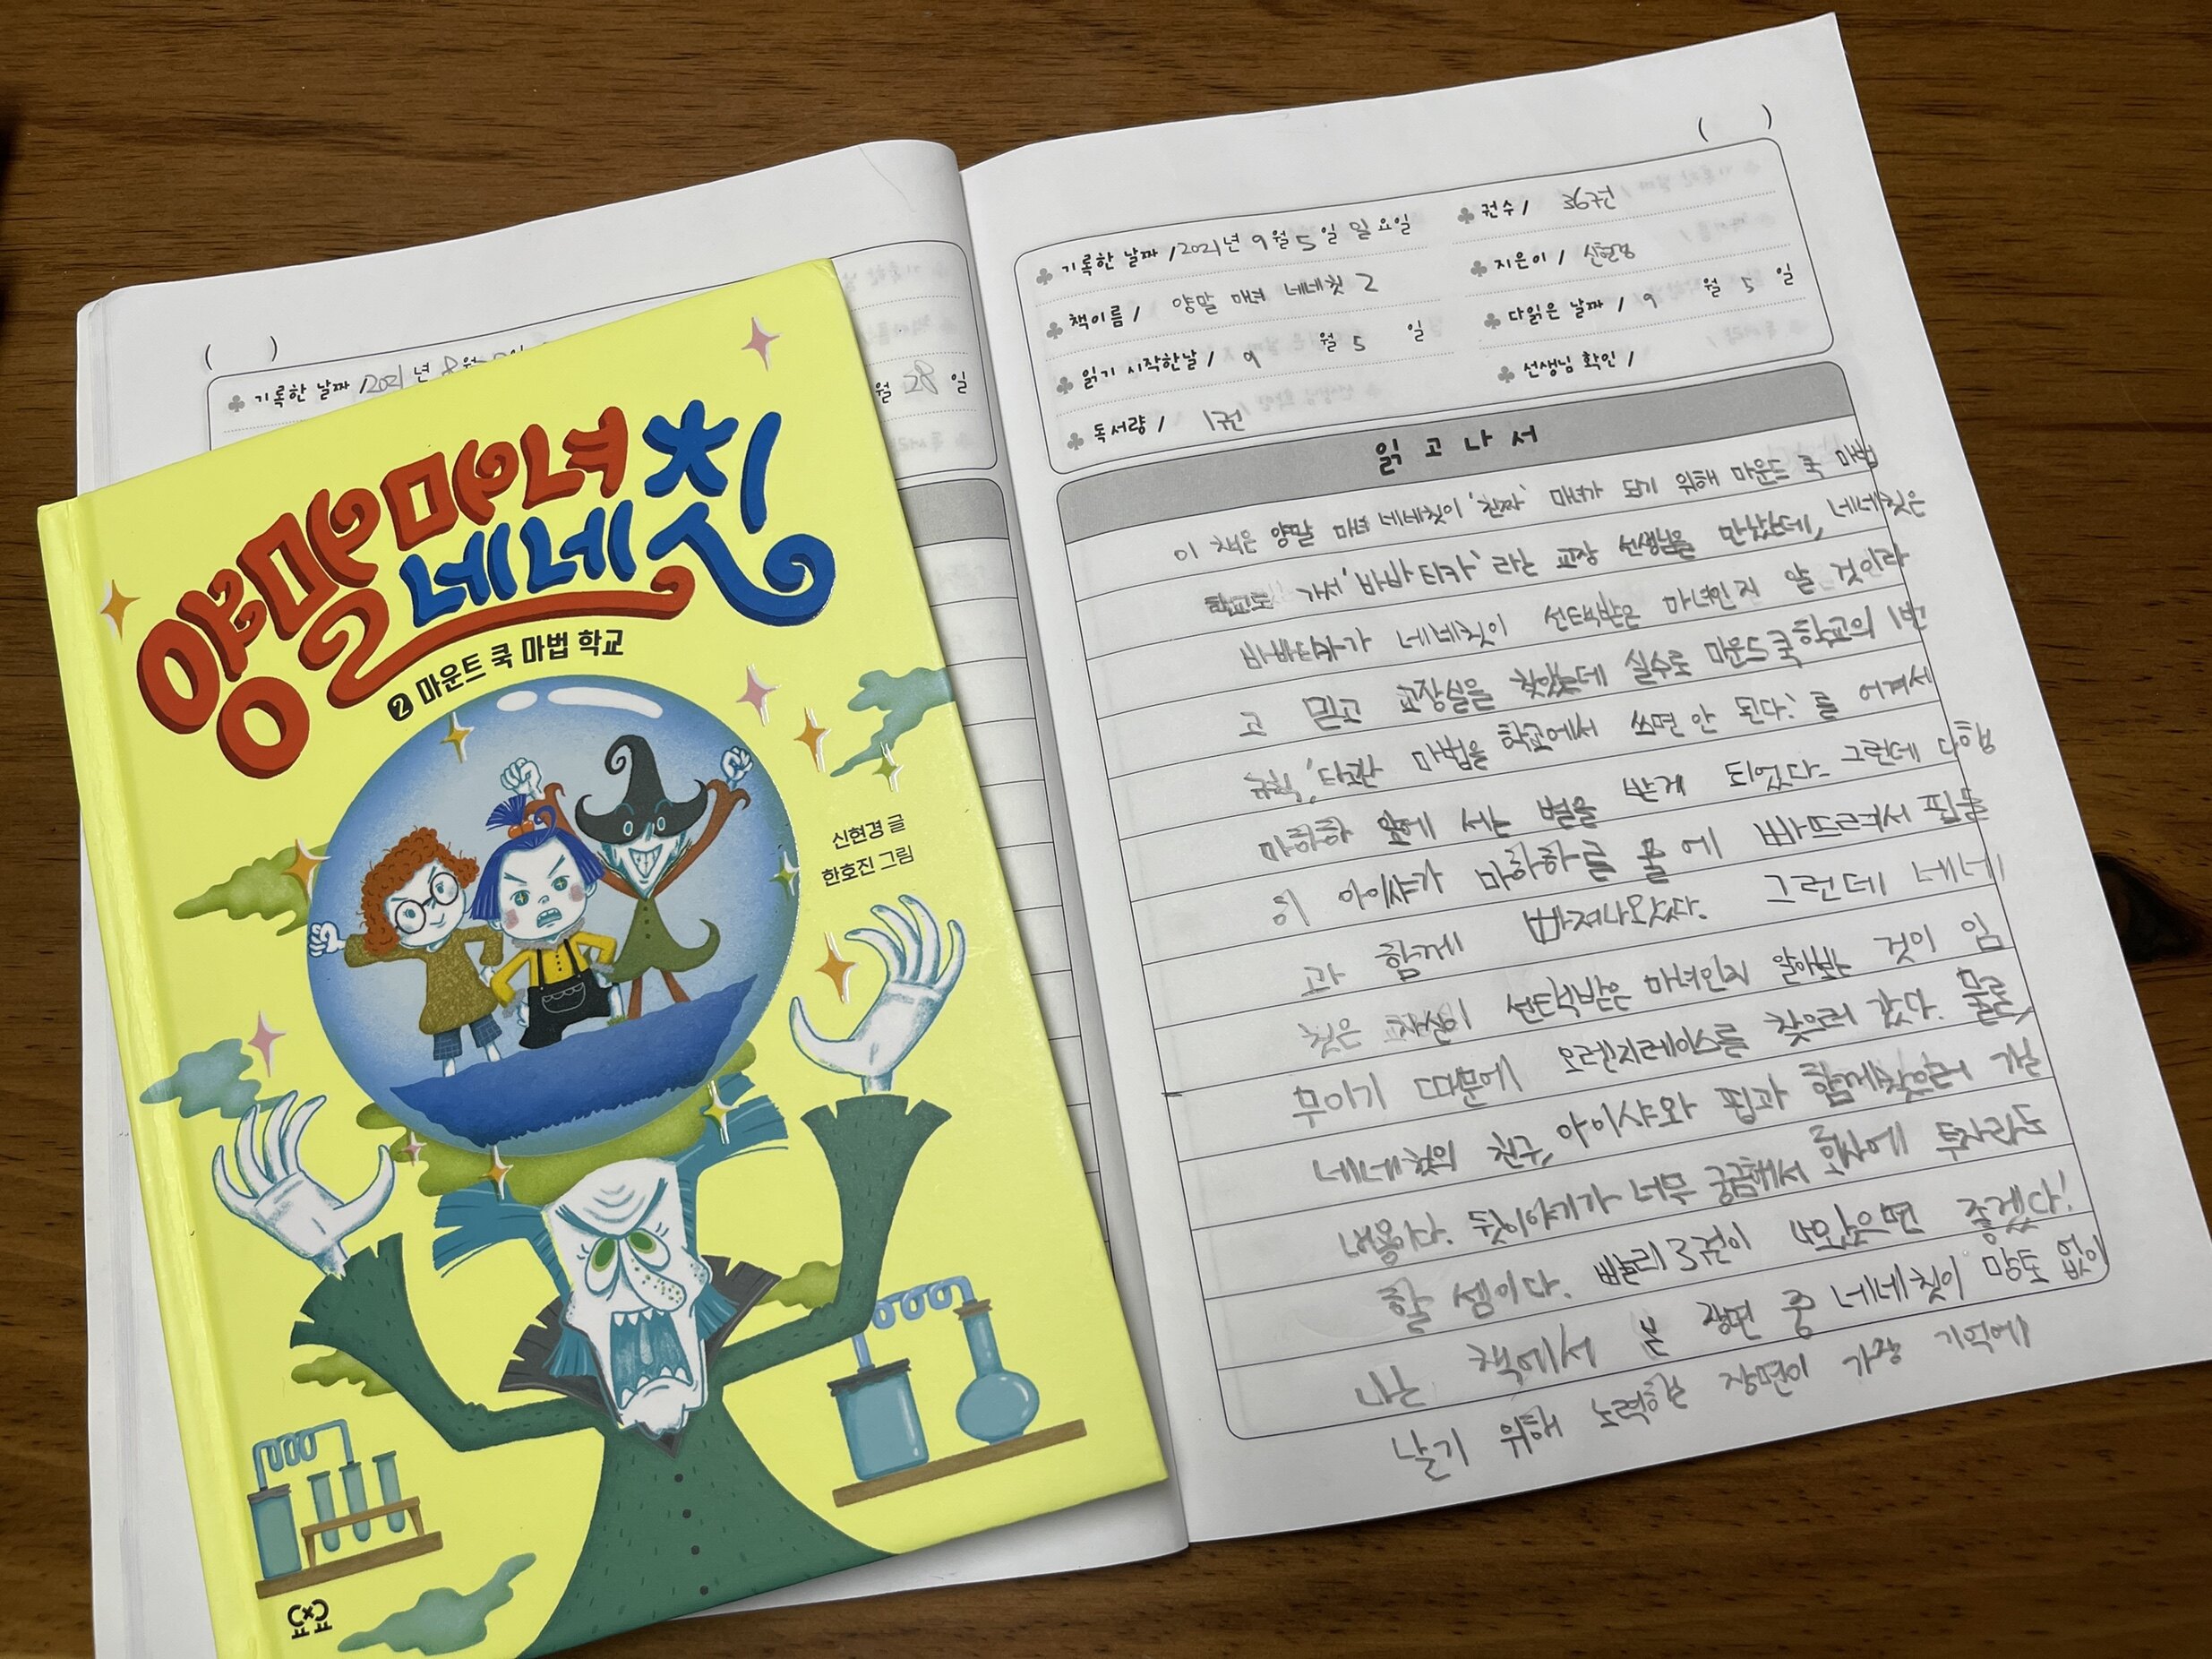 양말 마녀
네네칫
2 마운트 쿡 마법 학교
신현경 글
한호진 그림
요요
( )
기록한 날짜 / 2021 년 8 월
월 28 일
( )
기록한 날짜 / 2021 년 9 월 5 일 일 요일
권수 / 367권
책이름 / 양말 마녀 네네칫 2
지은이 / 신현경
읽기 시작한날 / 9 월 5 일
다읽은 날짜 / 9 월 5 일
독서량 / 1권
선생님 확인 /
읽고나서
이 책은 양말 마녀 네네칫이 '진짜' 마녀가 되기 위해 마운드 쿡 마법
학교로 가서 '바바티카' 라는 교장 선생님을 만났는데, 네네칫은
바바티카가 네네칫이 선택받은 마녀인지 알 것이라
고 믿고 교장실을 찾았는데 실수로 마운드쿡학교의 1번
규칙, 마법을 학교에서 쓰면 안 된다.'를 어겨서
마하하 앞에 서는 벌을 받게 되었다. 그런데 다행
히 아이샤가 마하하를 물에 빠뜨려서 핍들
과 함께 빠져나왔다. 그런데 네네
칫은 자신이 선택받은 마녀인지 알아보는 것이 임
무이기 때문에 오렌지레이스를 찾으러 갔다. 물론,
네네칫의 친구, 아이샤와 핍과 함께찾으러 가는
내용이다. 뒷이야기가 너무 궁금해서 회사에 투자라도
할 셈이다. 빨리 3권이 나왔으면 좋겠다!
나는 책에서 본 장면 중 네네칫이 망토 없이
날기 위해 노력하는 장면이 가장 기억에